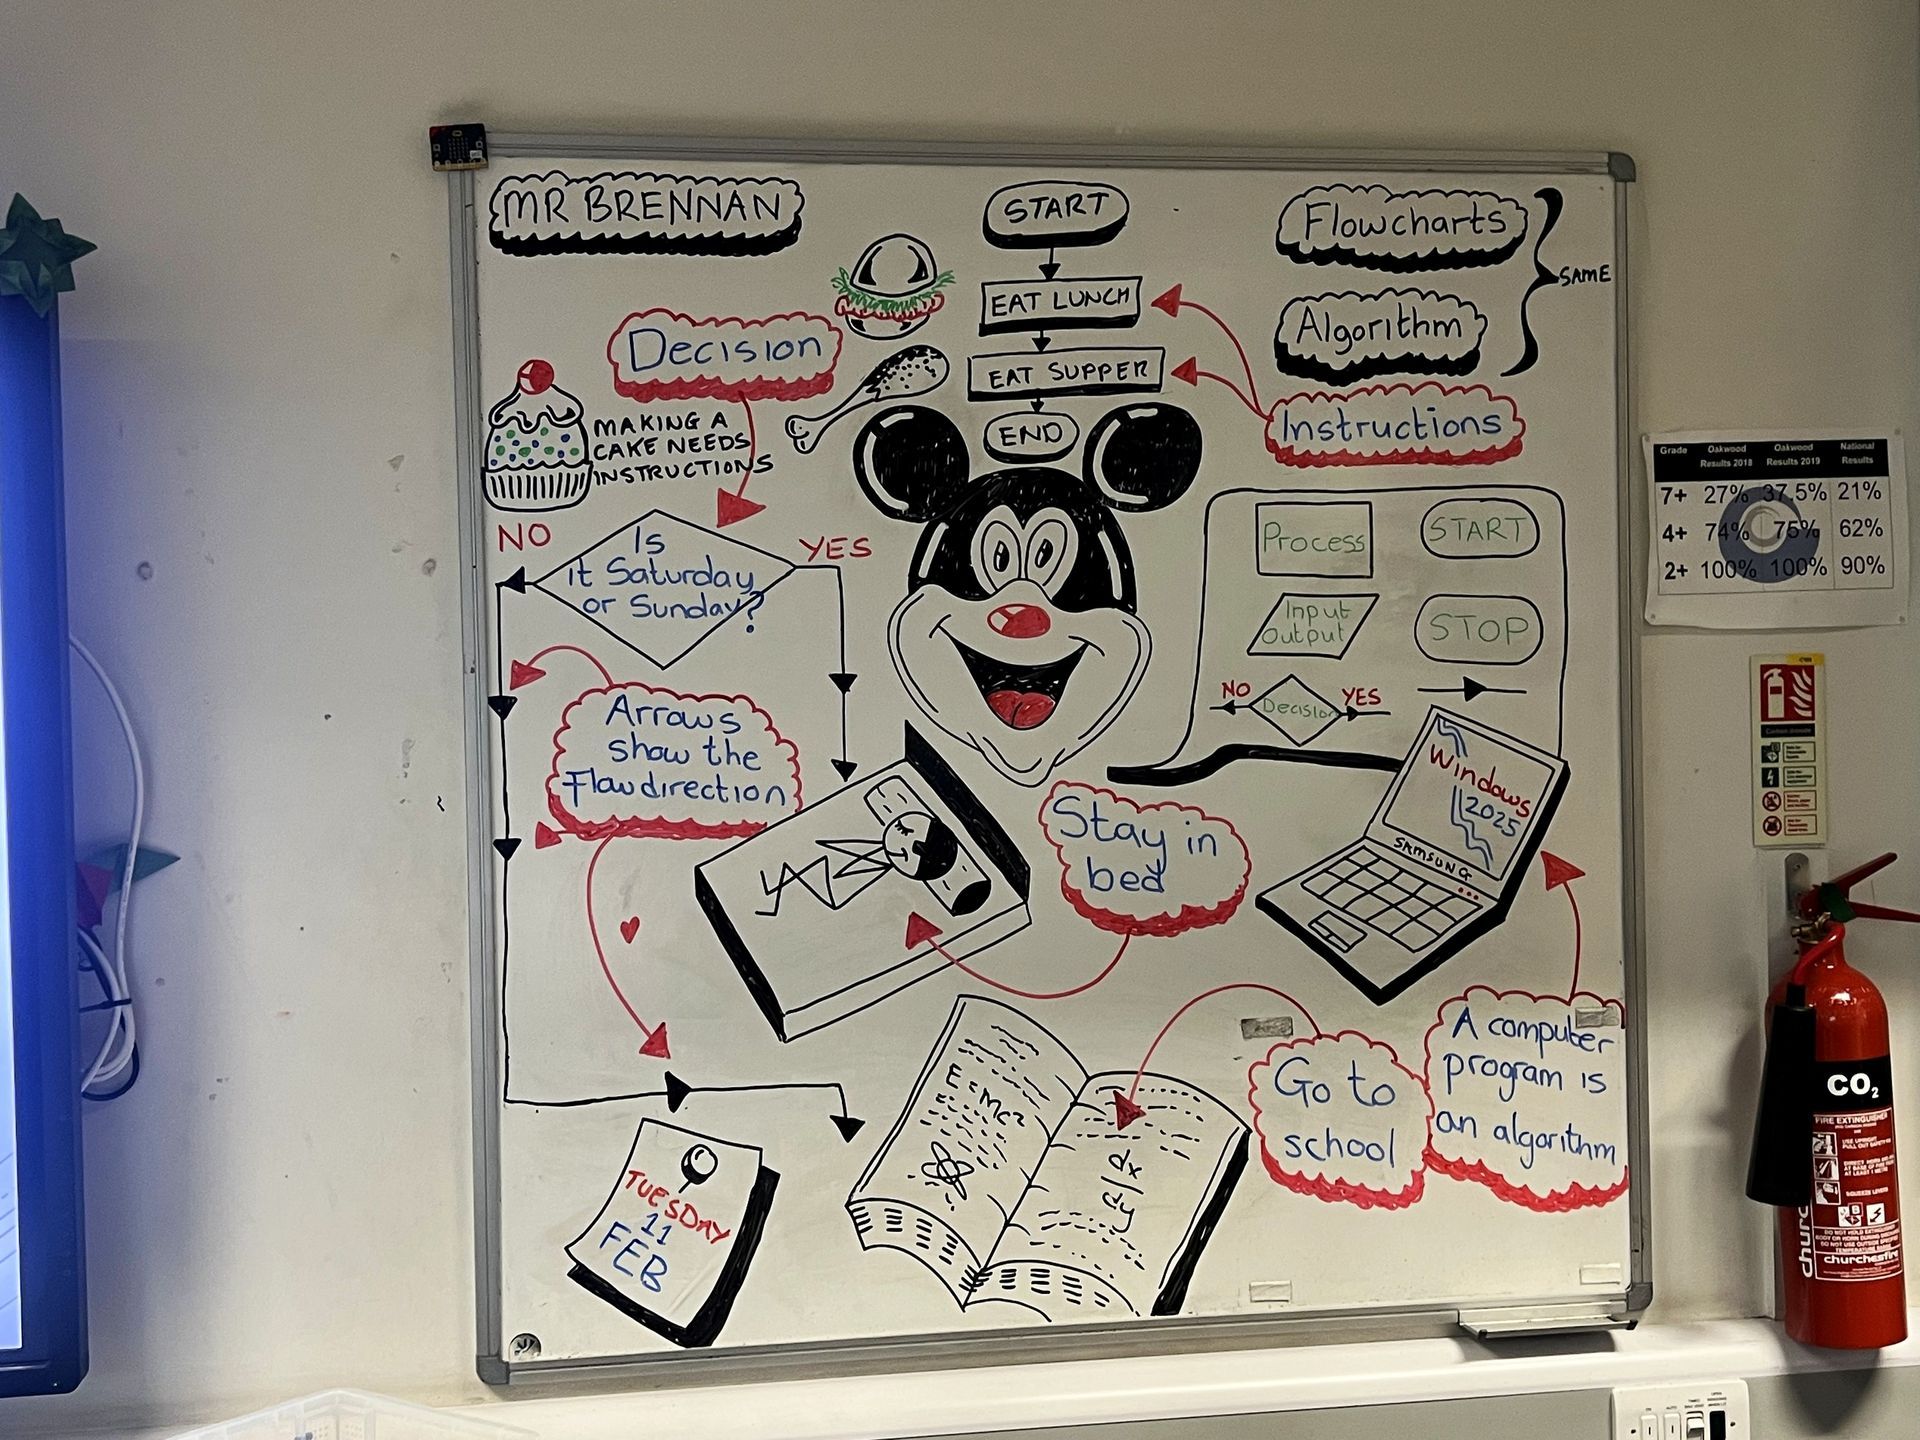 MR BRENNAN
START
EAT LUNCH
EAT SUPPER
END
Flowcharts
Algorithm
SAME
Instructions
Decision
MAKING A
CAKE NEEDS
INSTRUCTIONS
NO
YES
Is
it Saturday
or Sunday?
Arrows
show the
Flow direction
Process
START
Input
Output
STOP
NO
Decision
YES
Windows
2025
SAMSUNG
Stay in
bed
Go to
school
A computer
program is
an algorithm
E=MC²
dx
dy
TUESDAY
11
FEB
Grade Oakwood Oakwood National
Results 2018 Results 2019 Results
7+ 27% 37.5% 21%
4+ 74% 75% 62%
2+ 100% 100% 90%
CO₂
FIRE EXTINGUISHER
churchesfire